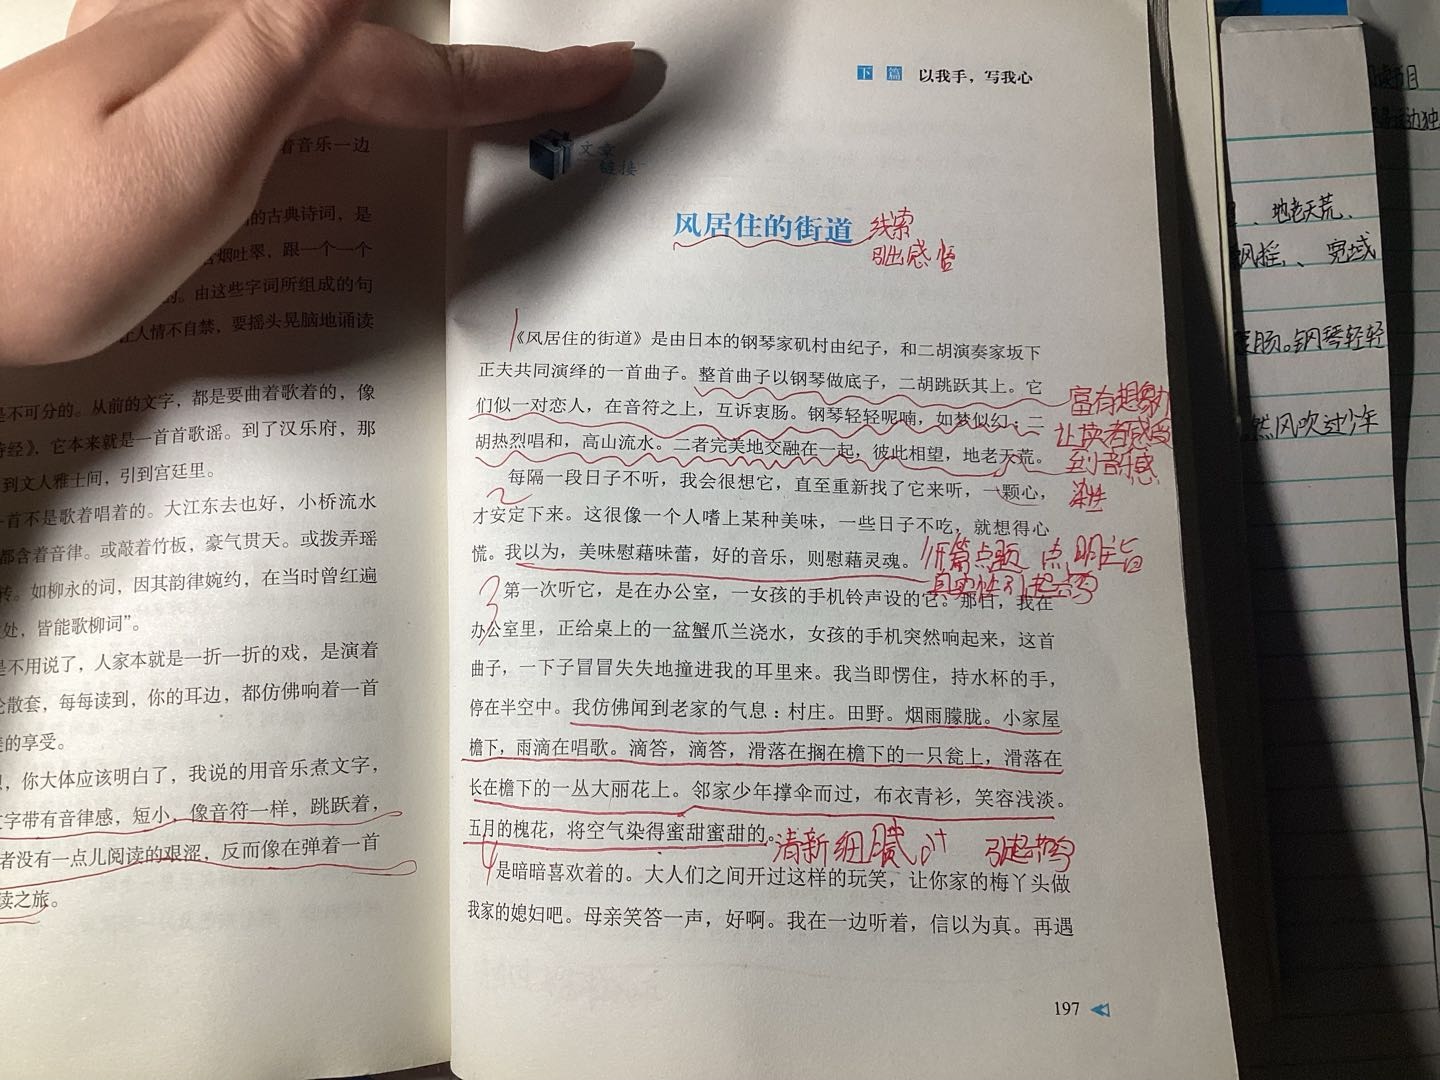 着音乐一边
的古典诗词，是
烟吐翠，跟一个一个
的。由这些字词所组成的句
让人情不自禁，要摇头晃脑地诵读
是不可分的。从前的文字，都是要曲着歌着的，像
诗经》，它本来就是一首首歌谣。到了汉乐府，那
到文人雅士间，引到宫廷里。
一首不是歌着唱着的。大江东去也好，小桥流水
都含着音律。或敲着竹板，豪气贯天。或拨弄瑶
转。如柳永的词，因其韵律婉约，在当时曾红遍
处，皆能歌柳词”。
是不用说了，人家本就是一折一折的戏，是演着
散套，每每读到，你的耳边，都仿佛响着一首
美的享受。
，你大体应该明白了，我说的用音乐煮文字，
文字带有音律感，短小，像音符一样，跳跃着，
者没有一点儿阅读的艰涩，反而像在弹着一首
读之旅。
下篇 以我手，写我心
文章
链接
风居住的街道 线索
引出感悟
1
《风居住的街道》是由日本的钢琴家矶村由纪子，和二胡演奏家坂下
正夫共同演绎的一首曲子。整首曲子以钢琴做底子，二胡跳跃其上。它
们似一对恋人，在音符之上，互诉衷肠。钢琴轻轻呢喃，如梦似幻；二
胡热烈唱和，高山流水。二者完美地交融在一起，彼此相望，地老天荒。
富有想象力
让读者感受
到音乐感
染性
2
每隔一段日子不听，我会很想它，直至重新找了它来听，一颗心，
才安定下来。这很像一个人嗜上某种美味，一些日子不吃，就想得心
慌。我以为，美味慰藉味蕾，好的音乐，则慰藉灵魂。
开篇点题 点明主旨
3
第一次听它，是在办公室，一女孩的手机铃声设的它。那日，我在
办公室里，正给桌上的一盆蟹爪兰浇水，女孩的手机突然响起来，这首
曲子，一下子冒冒失失地撞进我的耳里来。我当即愣住，持水杯的手，
停在半空中。我仿佛闻到老家的气息：村庄。田野。烟雨朦胧。小家屋
檐下，雨滴在唱歌。滴答，滴答，滑落在搁在檐下的一只瓮上，滑落在
长在檐下的一丛大丽花上。邻家少年撑伞而过，布衣青衫，笑容浅淡。
五月的槐花，将空气染得蜜甜蜜甜的。
清新细腻
4
是暗暗喜欢着的。大人们之间开过这样的玩笑，让你家的梅丫头做
我家的媳妇吧。母亲笑答一声，好啊。我在一边听着，信以为真。再遇
197
、地老天荒、
风摇、、宽域
衷肠。钢琴轻轻
然风吹过少年